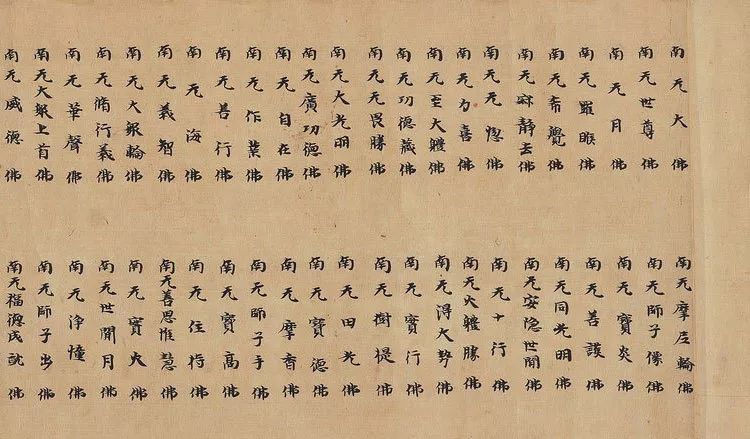 南无大佛
南无世尊佛
南无月佛
南无羅睺佛
南无希覺佛
南无寂静去佛
南无无惚佛
南无力喜佛
南无至大體佛
南无功德藏佛
南无无畏勝佛
南无大光明佛
南无廣功德佛
南无自在佛
南无作業佛
南无善行佛
南无海佛
南无義智佛
南无大眾輪佛
南无脩行義佛
南无華聲佛
南无大眾上首佛
南无威德佛
南无摩尼輪佛
南无師子像佛
南无寶炎佛
南无善護佛
南无同光明佛
南无安隐世間佛
南无十行佛
南无火體勝佛
南无得大勢佛
南无寶行佛
南无樹提佛
南无田光佛
南无寶德佛
南无摩香佛
南无師子手佛
南无寶高佛
南无住持佛
南无善思惟慧佛
南无寶火佛
南无世間月佛
南无浄憧佛
南无師子步佛
南无福德成就佛